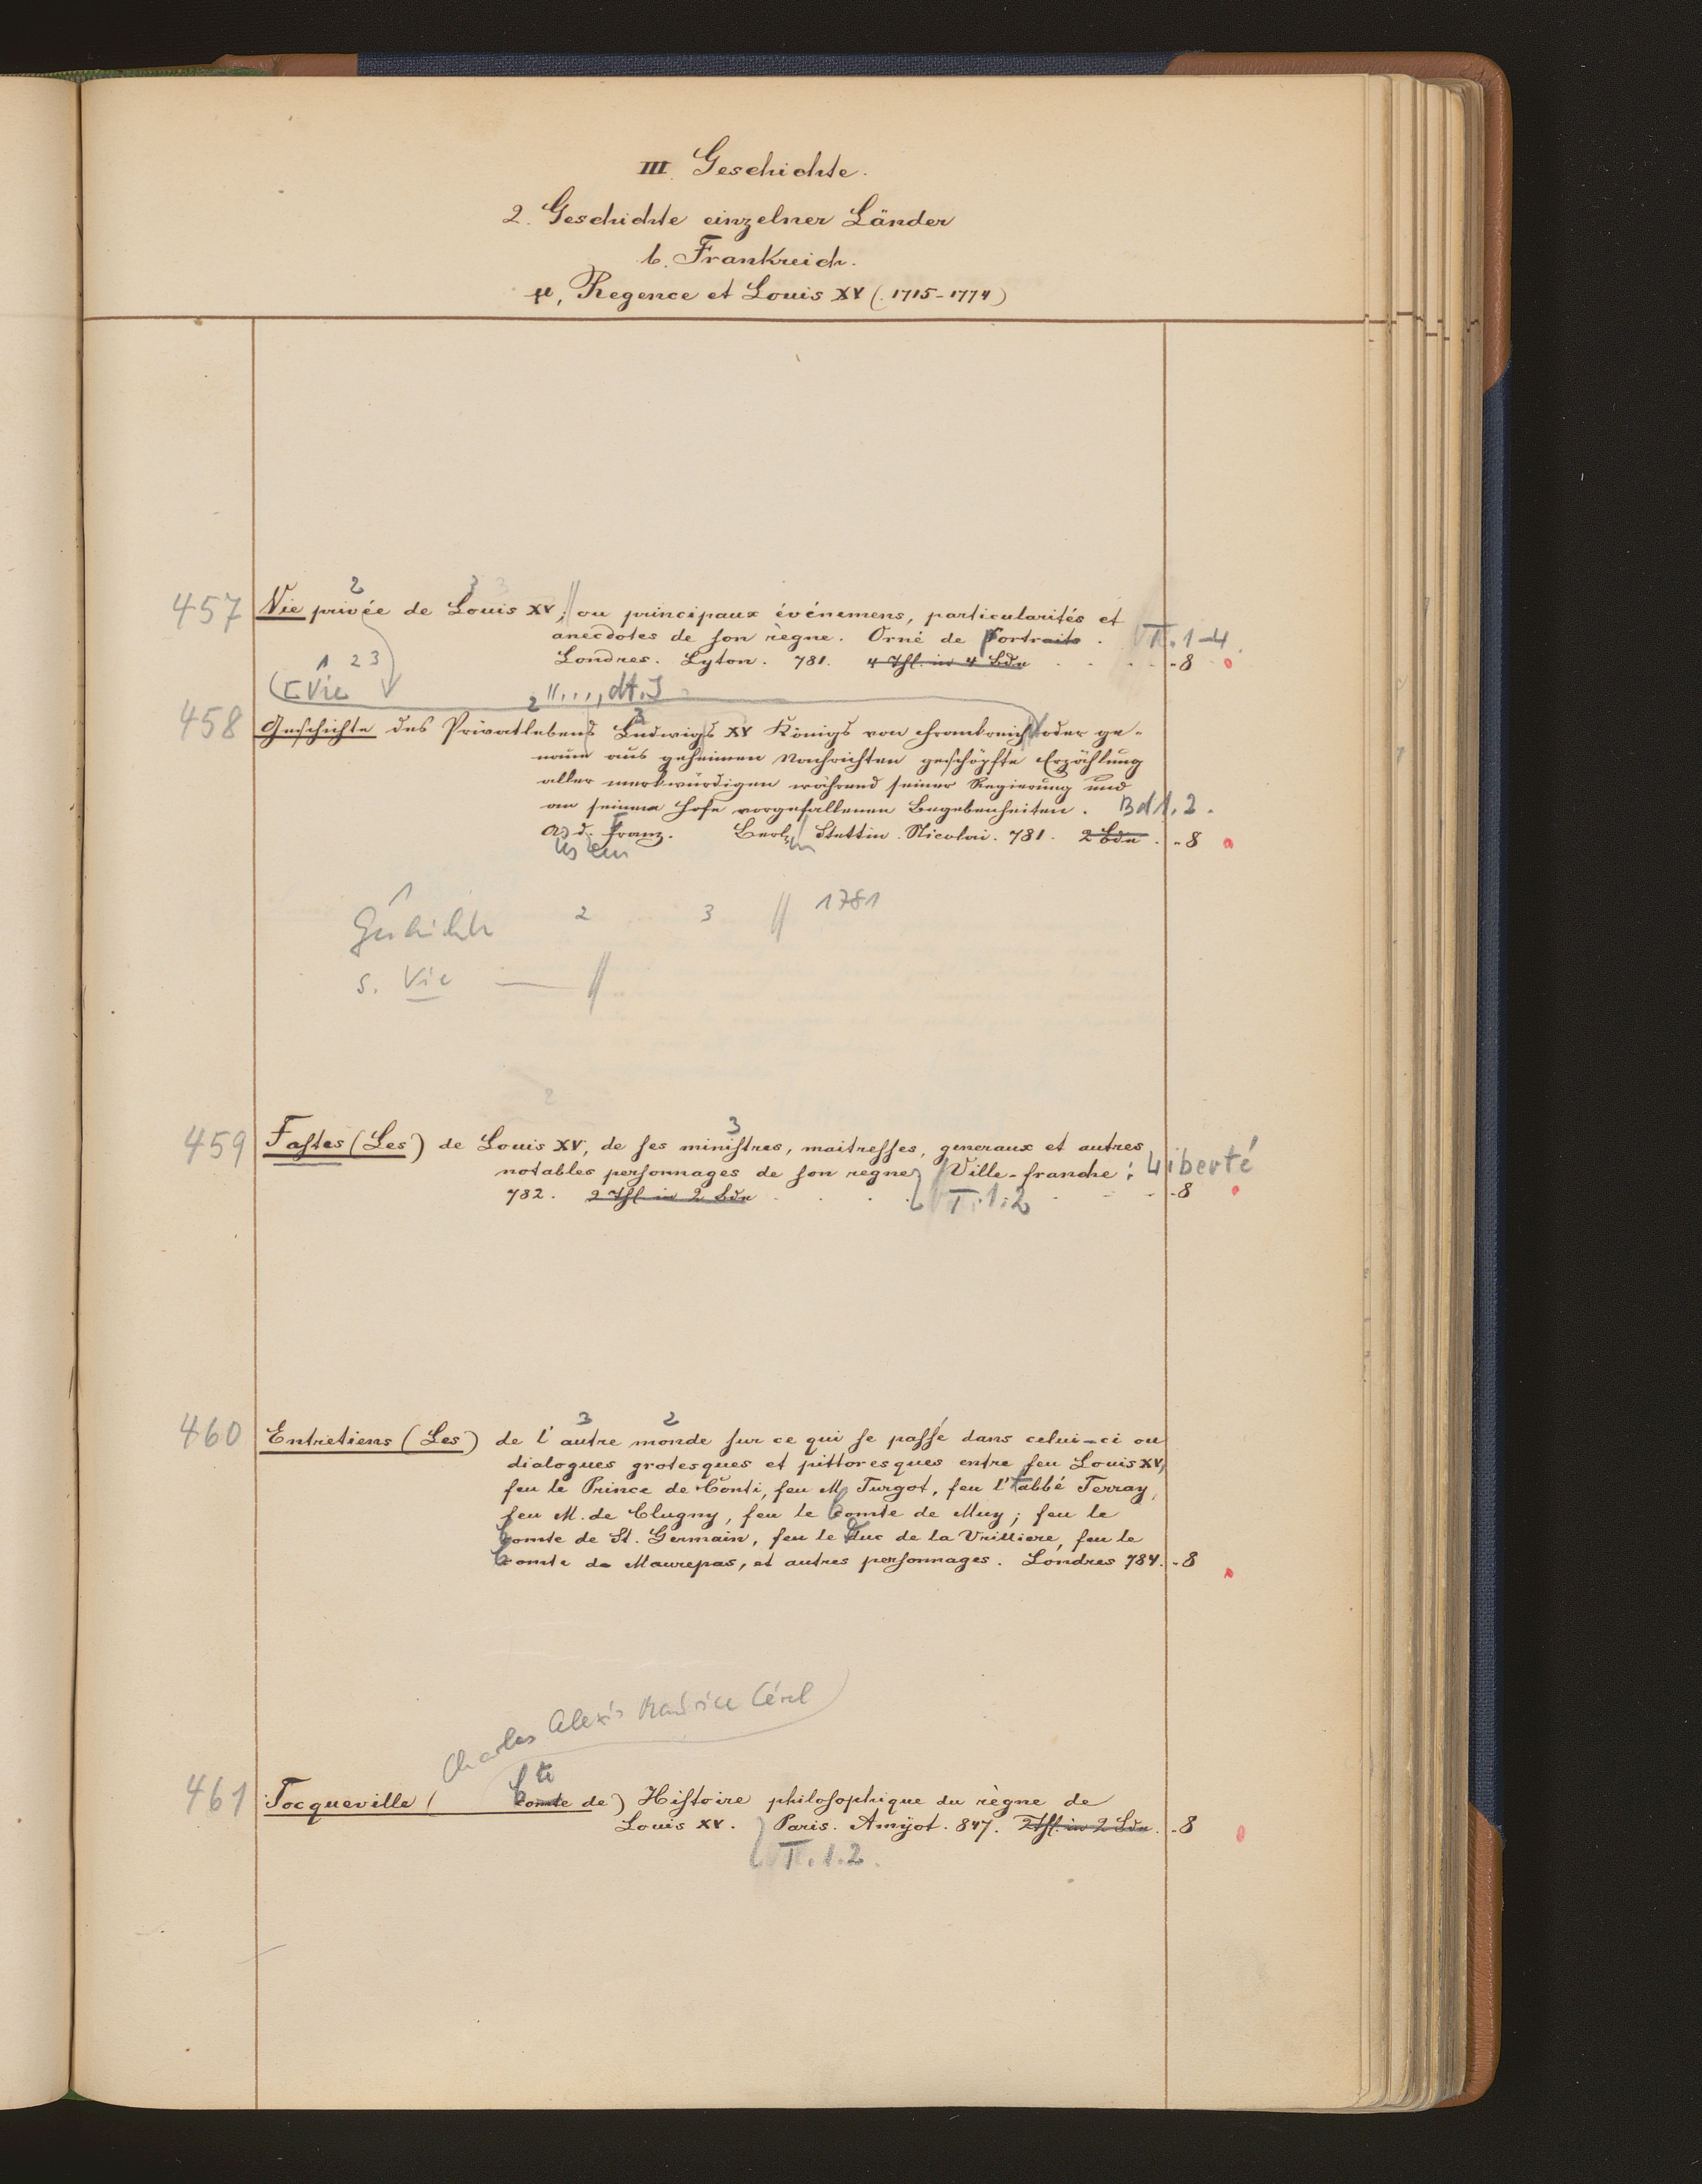 III. Geschichte.
2. Geschichte einzelner Länder
b. Frankreich.
μ, Regence et Louis XV (1715-1774)
2 3 3
457 Vie privée de Louis XV, // ou principaux événemens, particularités et
anecdotes de son règne. Orné de Portraits. T. 1-4.
Londres. Lyton. 781. 4 Thl. in 4 Bdn - 8
1 2 3
([Vie 2 "..., dt.]
3
458 Geschichte des Privatlebens Ludwigs XV Königs von Frankreich oder ge-
naue aus geheimen Nachrichten geschöpfte Erzählung
aller merkwürdigen während seiner Regierung und
an seinem Hofe vorgefallenen Begebenheiten. Bd 1. 2.
A. d. Franz. Berl. Stettin. Nicolai. 781. 2 Bdn. - 8
us em in
1
Geschichte 2 3 // 1781
s. Vie — //
2
3
459 Fastes (Les) de Louis XV, de ses ministres, maitresses, generaux et autres
notables personnages de son regne Ville-franche: Liberté
782. 2 Thl in 2 Bdn - 8
T. 1. 2
3 2
460 Entretiens (Les) de l'autre monde sur ce qui se passé dans celui-ci ou
dialogues grotesques et pittoresques entre feu Louis XV,
feu le Prince de Conti, feu M. Turgot, feu l'abbé Terray,
feu M. de Clugny, feu le Comte de Muy; feu le
Comte de St. Germain, feu le Duc de la Vrilliere, feu le
Comte de Maurepas, et autres personnages. Londres 784. - 8
Charles Alexis Maurice Cérel
Cte
461 Tocqueville (Comte de) Histoire philosophique du règne de
Louis XV. Paris. Amyot. 847. 2 Thl. in 2 Bdn. - 8
T. 1. 2.